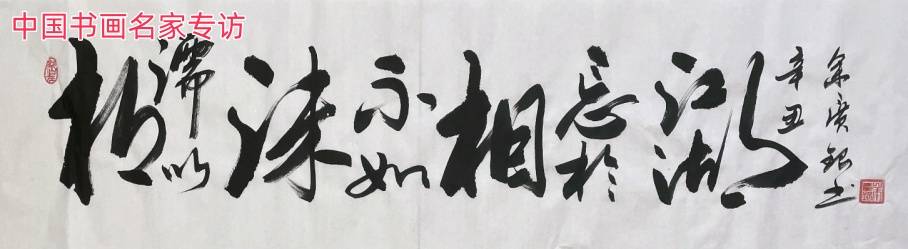 中国书画名家专访
相濡以沫不如相忘於江湖
辛丑
余廣銀书